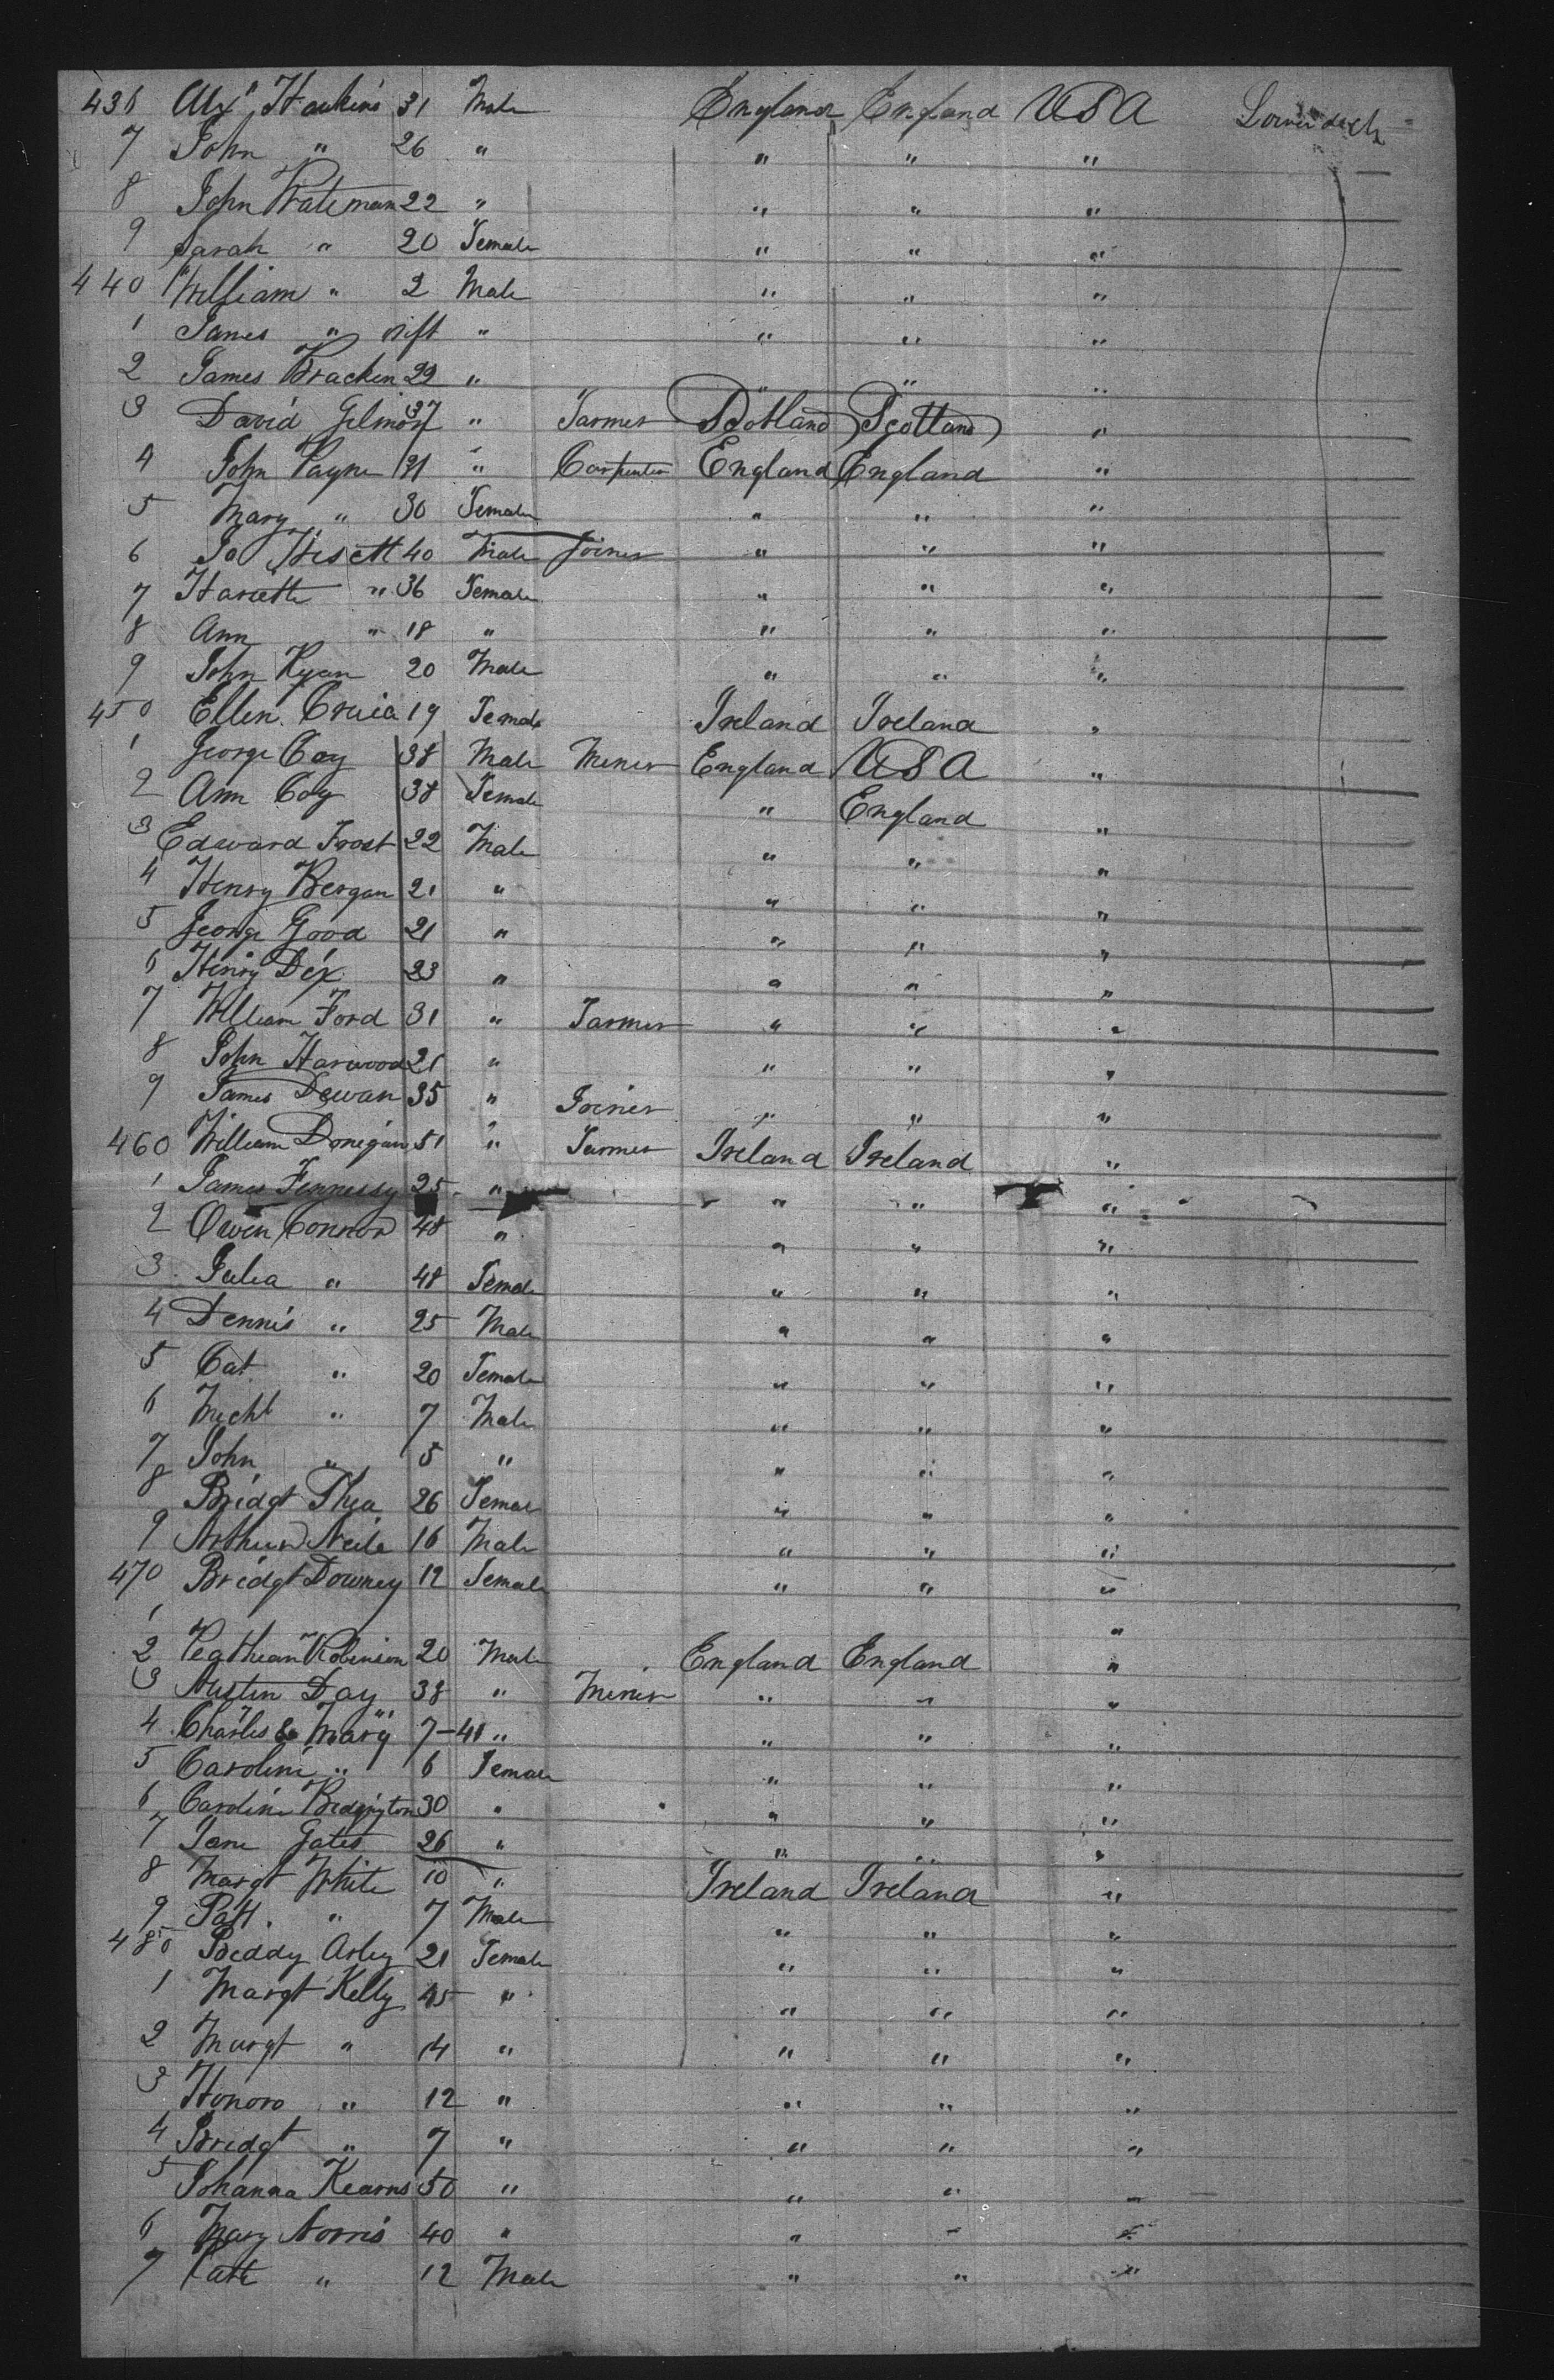 436 Alxr Hawkins 31 Male England England USA Lower deck
7 John " 26 " " " "
8 John Wateman 22 " " " "
9 Sarah " 20 Female " " "
440 William " 2 Male " " "
1 James " inft " " " "
2 James Bracken 22 " " " "
3 David Gilmor 37 " Farmer Scotland Scotland "
4 John Payne 31 " Carpenter England England "
5 Mary " 30 Female " " "
6 40 Male Joiner " " "
7 Hariette " 36 Female " " "
8 Ann " 18 " " " "
9 John Ryan 20 Male " " "
450 Ellen 19 Female Ireland Ireland "
1 George Coy 38 Male Miner England USA "
2 Ann Coy 38 Female " England "
3 Edward Frost 22 Male " " "
4 Henry Bergan 21 " " " "
5 George Good 21 " " " "
6 Henry Dex 23 " " " "
7 William Ford 31 " Farmer " " "
8 John Harwood 21 " " " "
9 James Dewan 35 " Joiner " " "
460 William Donegan 51 " Farmer Ireland Ireland "
1 James Fennessy 25 " " " "
2 Owen Connor 48 " " " "
3 Julia " 48 Female " " "
4 Dennis " 25 Male " " "
5 Cat " 20 Female " " "
6 Michl " 7 Male " " "
7 John " 5 " " " "
8 Bridgt Shea 26 Female " " "
9 Arthur Neile 16 Male " " "
470 Bridgt Downey 12 Female " " "
1 "
2 Robinson 20 Male England England "
3 Austin Day 38 " Miner " " "
4 Charles & Mary " 7-41 " " " "
5 Caroline " 6 Female " " "
6 Caroline Bedgington 30 " " " "
7 Jane Gates 26 " " " "
8 Margt White 10 " Ireland Ireland "
9 Patt. " 7 Male " " "
480 Beddy 21 Female " " "
1 Margt Kelly 45 " " " "
2 Margt " 14 " " " "
3 Honoro " 12 " " " "
4 Bridgt " 7 " " " "
5 Johanna Kearns 50 " " " "
6 Mary Norris 40 " " " "
7 Patk " 12 Male " " "